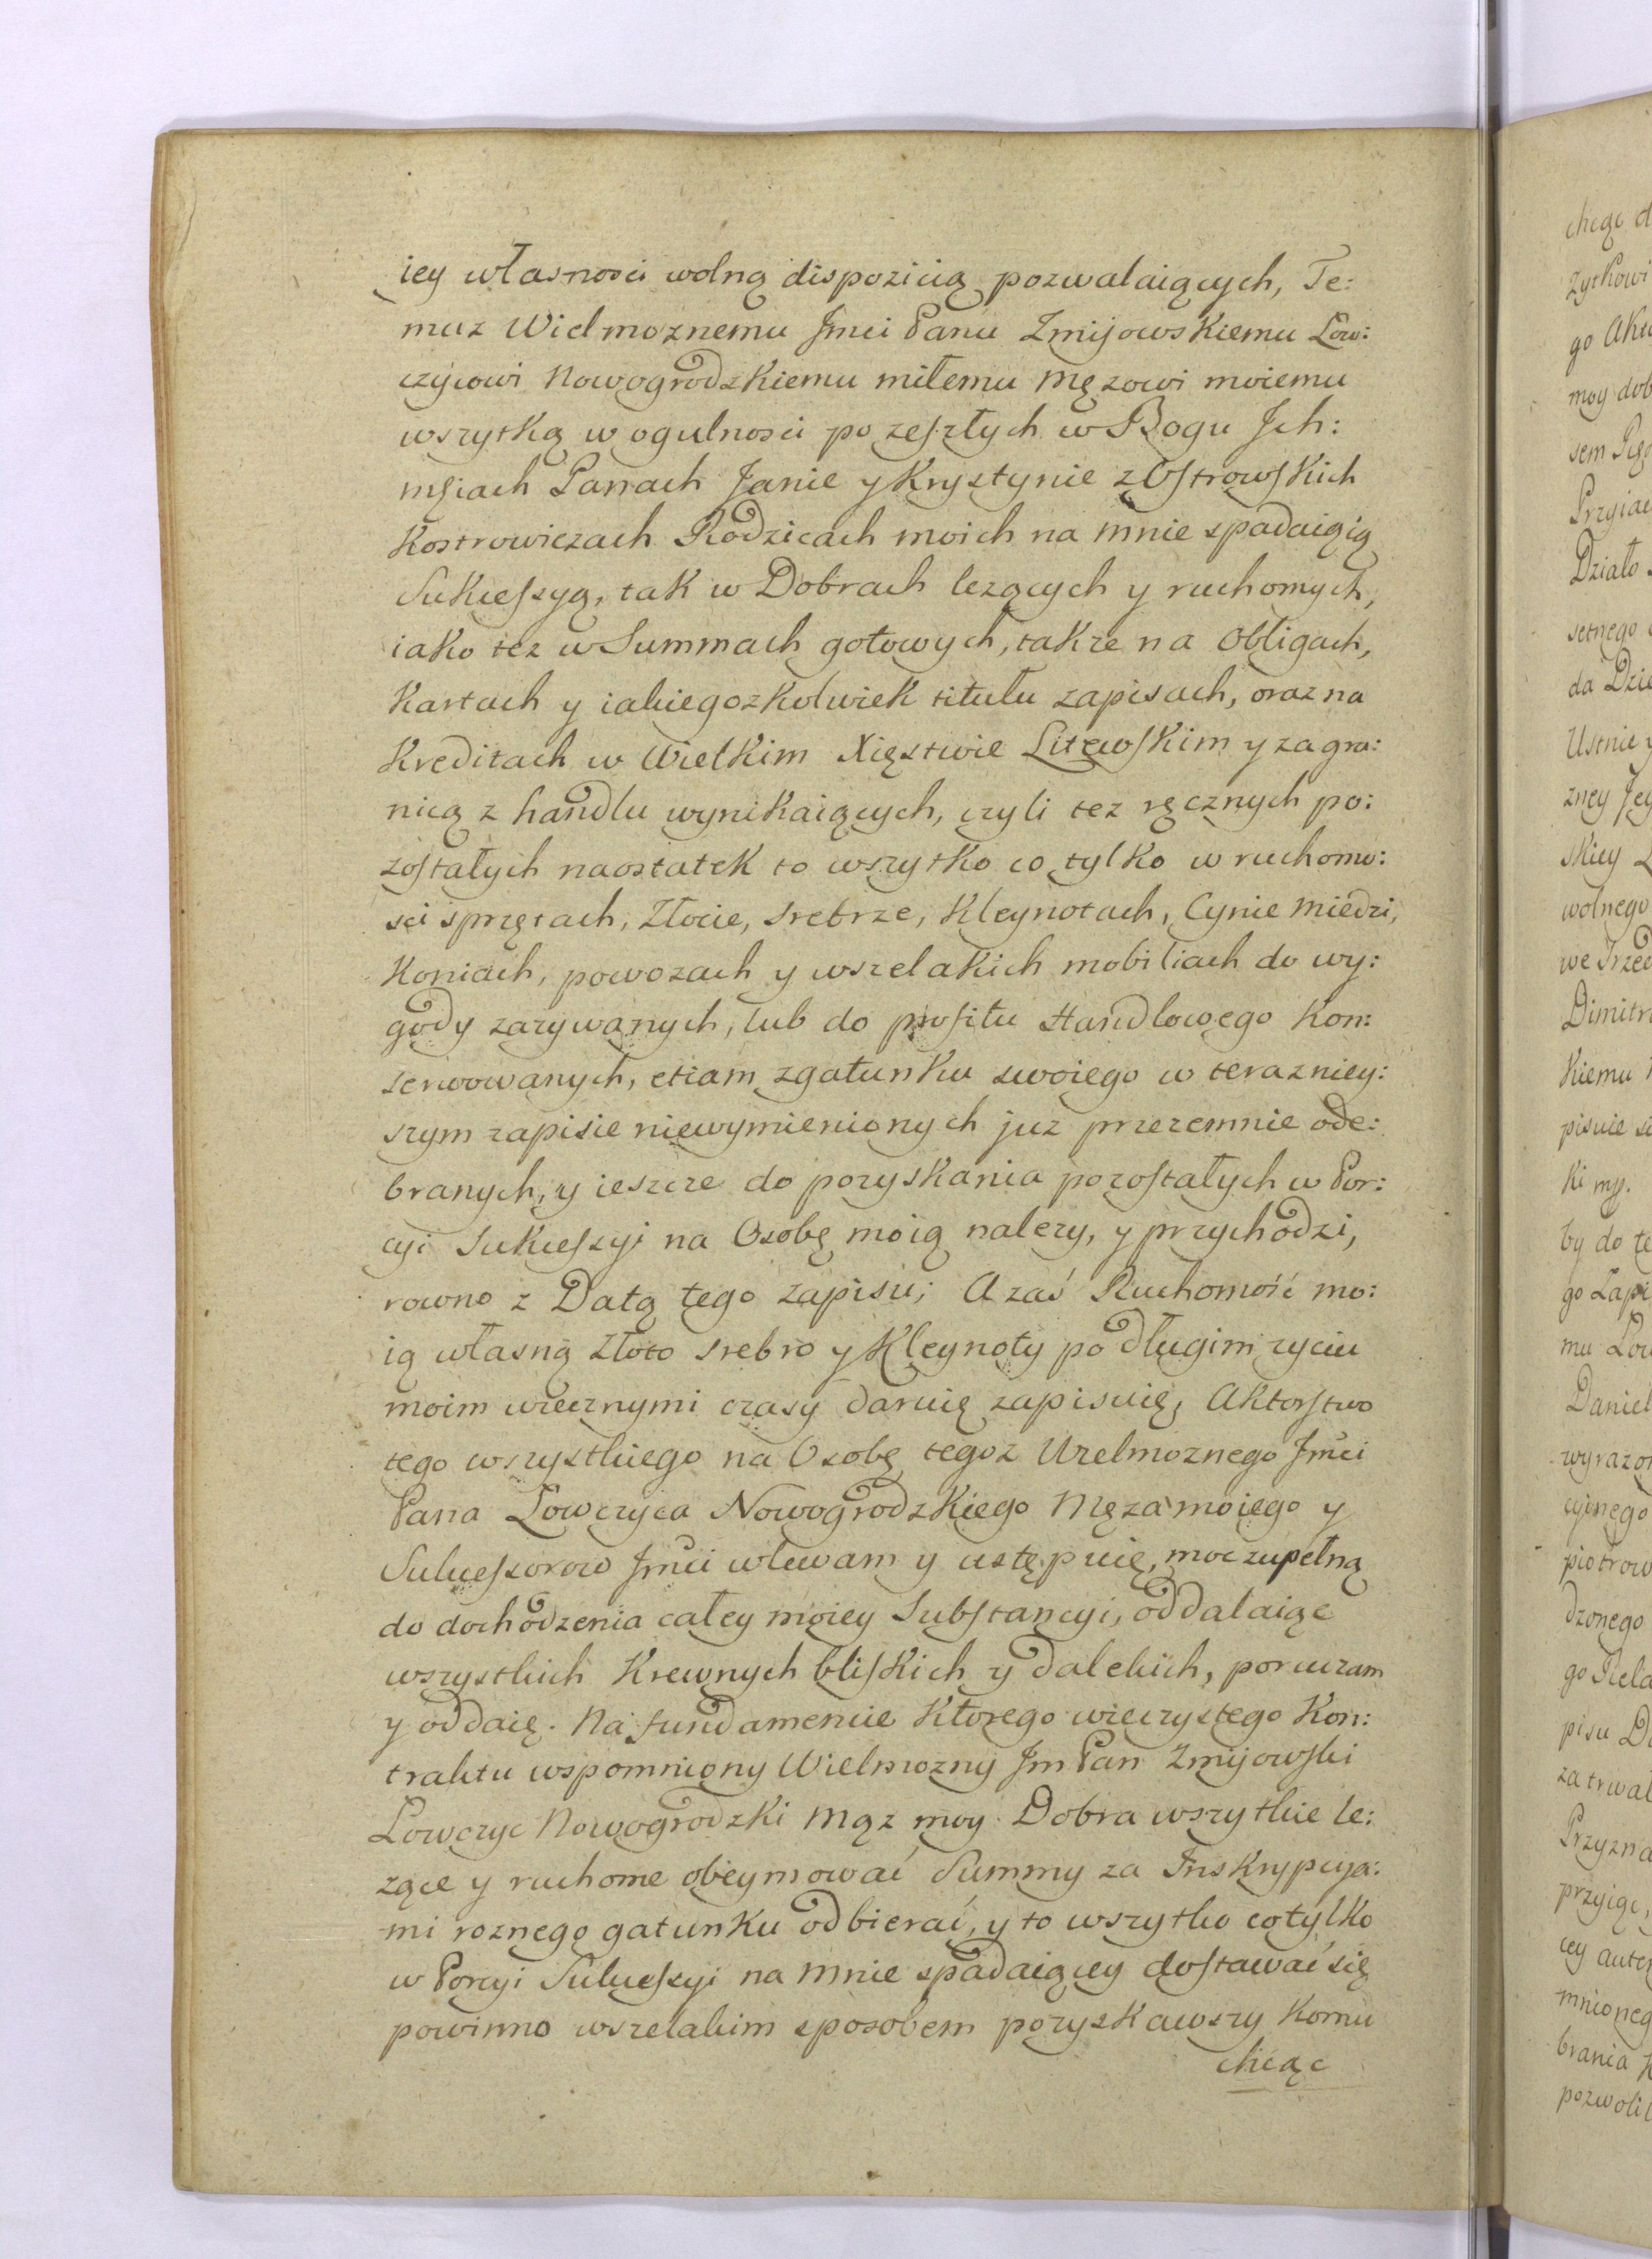 iey własnosci wolną dispozicią pozwalaiących, Te:
muz Wielmoznemu Jmci Panu Zmijowskiemu Łow:
czycowi Nowogrodzkiemu miłemu Męzowi moiemu
wszytką w ogulnosci po zeszłych w Bogu Jch:
msciach Panach Janie y Krystynie z Ostrowskich
Kostrowiczach Rodzicach moich na mnie spadaiąią
Sukcessyą, tak w Dobrach lezących y ruchomych,
iako tez w Summach gotowych, takze na Obligach,
Kartach y iakiegozkolwiek titułu zapisach, oraz na
Kreditach w Wielkim Xięstwie Litewskim y za gra:
nicą z handlu wynikaiących, czyli tez ręcznych po:
zostałych naostatek to wszytko co tylko w ruchomo:
sci sprzętach, Złocie, srebrze, Kleynotach, Cynie Miedzi,
Koniach, powozach y wszelakich mobiliach do wy:
gody zazywanych, lub do profitu Handlowego Kon:
serwowanych, etiam z gatunku swoiego w terazniey:
szym zapisie niewymienionych juz przezemnie ode:
branych, y ieszcze do pozyskania pozostałych w Por:
cyi Sukcessyi na Osobę moią nalezy, y przychodzi,
rowno z Datą tego zapisu; A zaś Ruchomość mo:
ią własną Złoto srebro y Kleynoty po długim zyciu
moim wiecznymi czasy daruię zapisuię, Aktorstwo
tego wszystkiego na Osobę tegoz Wielmoznego Jmci
Pana Łowczyca Nowogrodzkiego Męza moiego y
Sukcessorow Jmci wlewam y ustępuię, moc zupełną
do dochodzenia całey moiey Substancyi, oddalaiąc
wszystkich Krewnych bliskich y dalekich, poruczam
y oddaię. Na fundamencie Ktorego wieczystego Kon:
traktu wspomniony Wielmozny Jm Pan Zmijowski
Łowczyc Nowogrodzki Mąz moy Dobra wszytkie le:
zące y ruchome obeymować Summy za Inskrypcya:
mi roznego gatunku odbierać, y to wszytko co tylko
w Porcyi Sukcessyi na Mnie spadaiącey dostawać się
powinno wszelakim sposobem pozyskawszy Komu
chcąc
chcąc d
zytkowi
go Aktu
moy dob
sem Pię
Przyiac
Działo
setnego
da Dzie
Ustnie y
zney Jey
skiey
wolnego
we Trzed
Dimitr
Kiemu
pisuie si
ki mp.
by do te
go Zapi
mu Łow
Daniel
wyrazon
cyinego
piotrow
dzonego
go Rela
pisu Do
za trwał
Przyzna
przyiąć,
cey auten
mnioneg
brania K
pozwolił